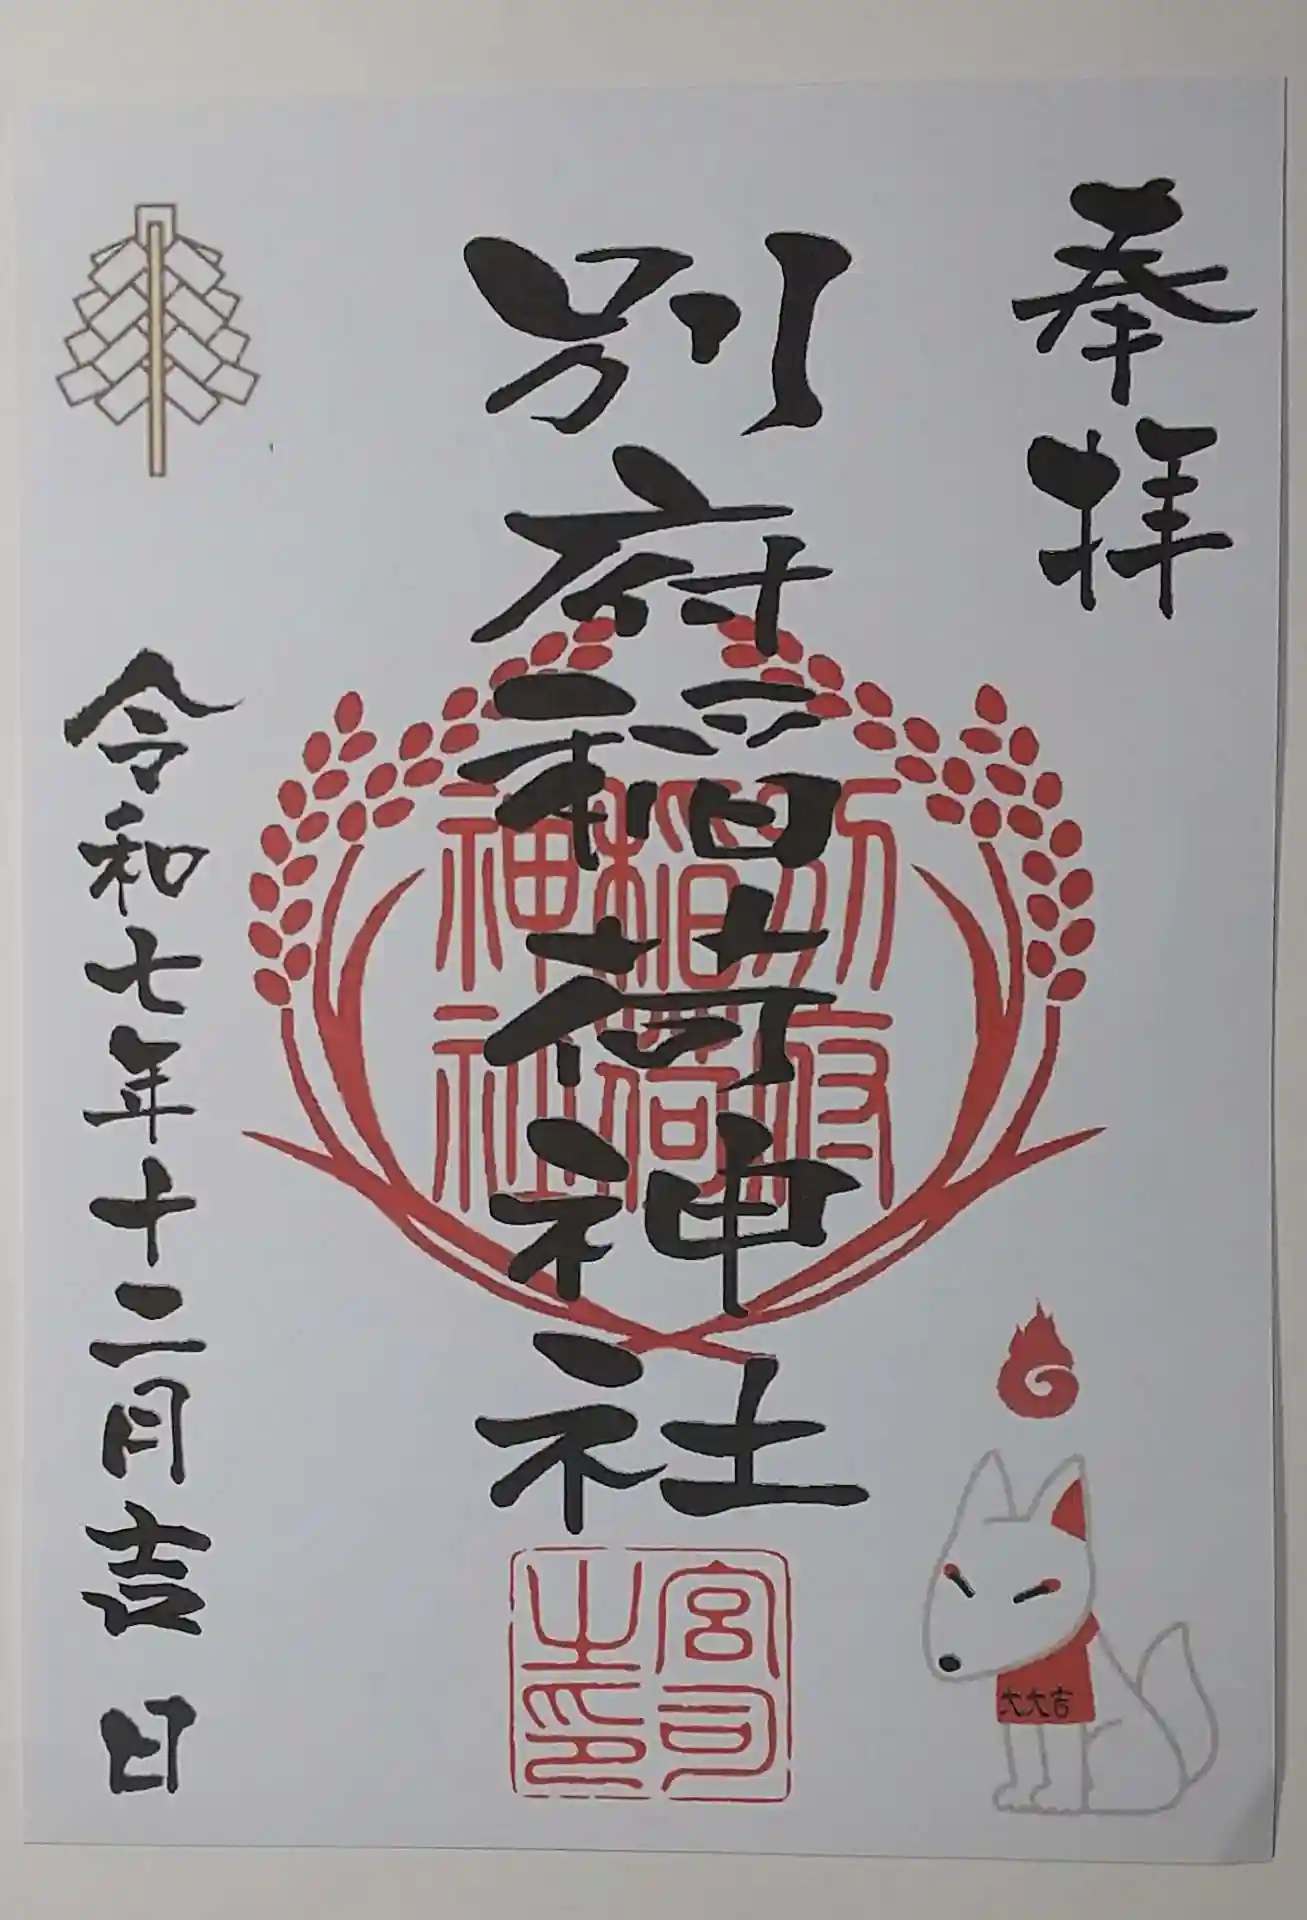 奉拝
別府稲荷神社
別府稲荷神社
宮司之印
大大吉
令和七年十二月吉日